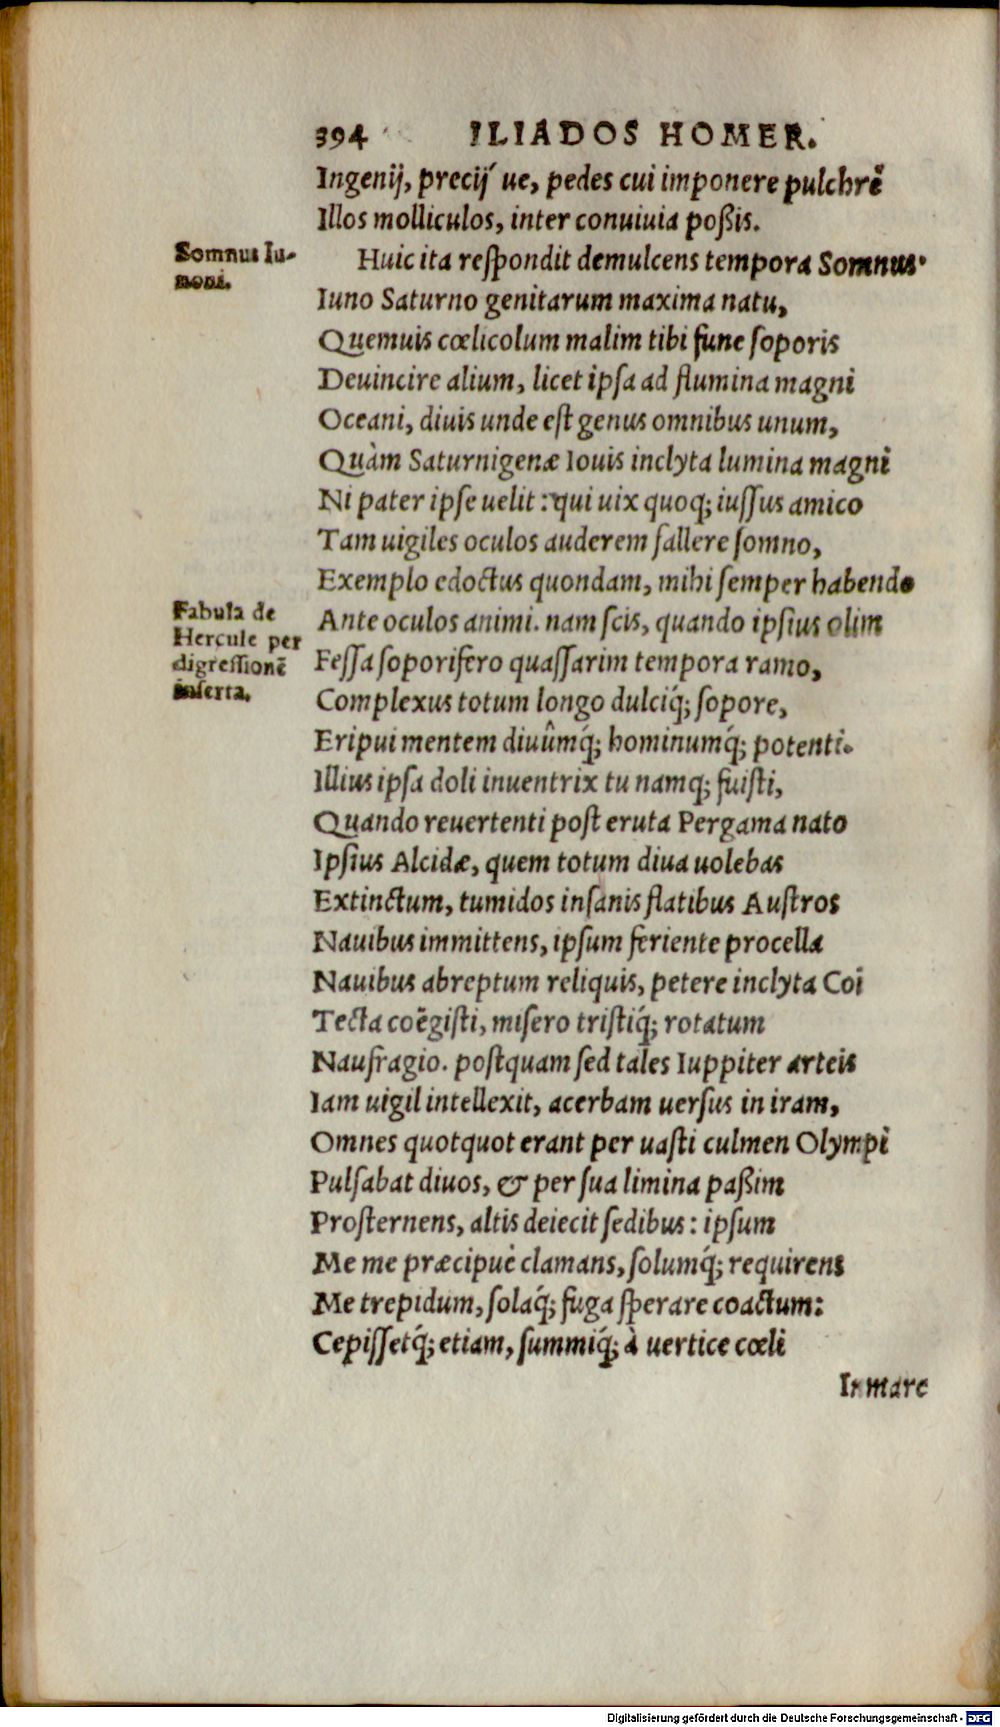 394 ILIADOS HOMER.
Ingenij, precij́ ue, pedes cui imponere pulchrè
Illos molliculos, inter conuiuia poßis.
Somnus Iu-
noni.
Huic ita reſpondit demulcens tempora Somnus·
Iuno Saturno genitarum maxima natu,
Quemuis cœlicolum malim tibi fune ſoporis
Deuincire alium, licet ipſa ad flumina magni
Oceani, diuis unde eſt genus omnibus unum,
Quàm Saturnigenæ Iouis inclyta lumina magni
Ni pater ipſe uelit: qui uix quoq; iuſſus amico
Tam uigiles oculos auderem fallere ſomno,
Exemplo edoctus quondam, mihi ſemper habendo
Fabula de
Hercule per
digreſſionē
inſerta.
Ante oculos animi. nam ſcis, quando ipſius olim
Feſſa ſoporifero quaſſarim tempora ramo,
Complexus totum longo dulciq́; ſopore,
Eripui mentem diuûmq́; hominumq́; potenti.
Illius ipſa doli inuentrix tu namq; fuiſti,
Quando reuertenti poſt eruta Pergama nato
Ipſius Alcidæ, quem totum diua uolebas
Extinctum, tumidos inſanis flatibus Auſtros
Nauibus immittens, ipſum feriente procella
Nauibus abreptum reliquis, petere inclyta Coi
Tecta coëgiſti, miſero triſtiq́; rotatum
Naufragio. poſtquam ſed tales Iuppiter arteis
Iam uigil intellexit, acerbam uerſus in iram,
Omnes quotquot erant per uaſti culmen Olympi
Pulſabat diuos, & per ſua limina paßim
Proſternens, altis deiecit ſedibus: ipſum
Me me præcipuè clamans, ſolumq́; requirens
Me trepidum, ſolaq́; fuga ſperare coactum:
Cepiſſetq́; etiam, ſummiq́; à uertice cœli
In mare
Digitalisierung gefördert durch die Deutsche Forschungsgemeinschaft - DFG